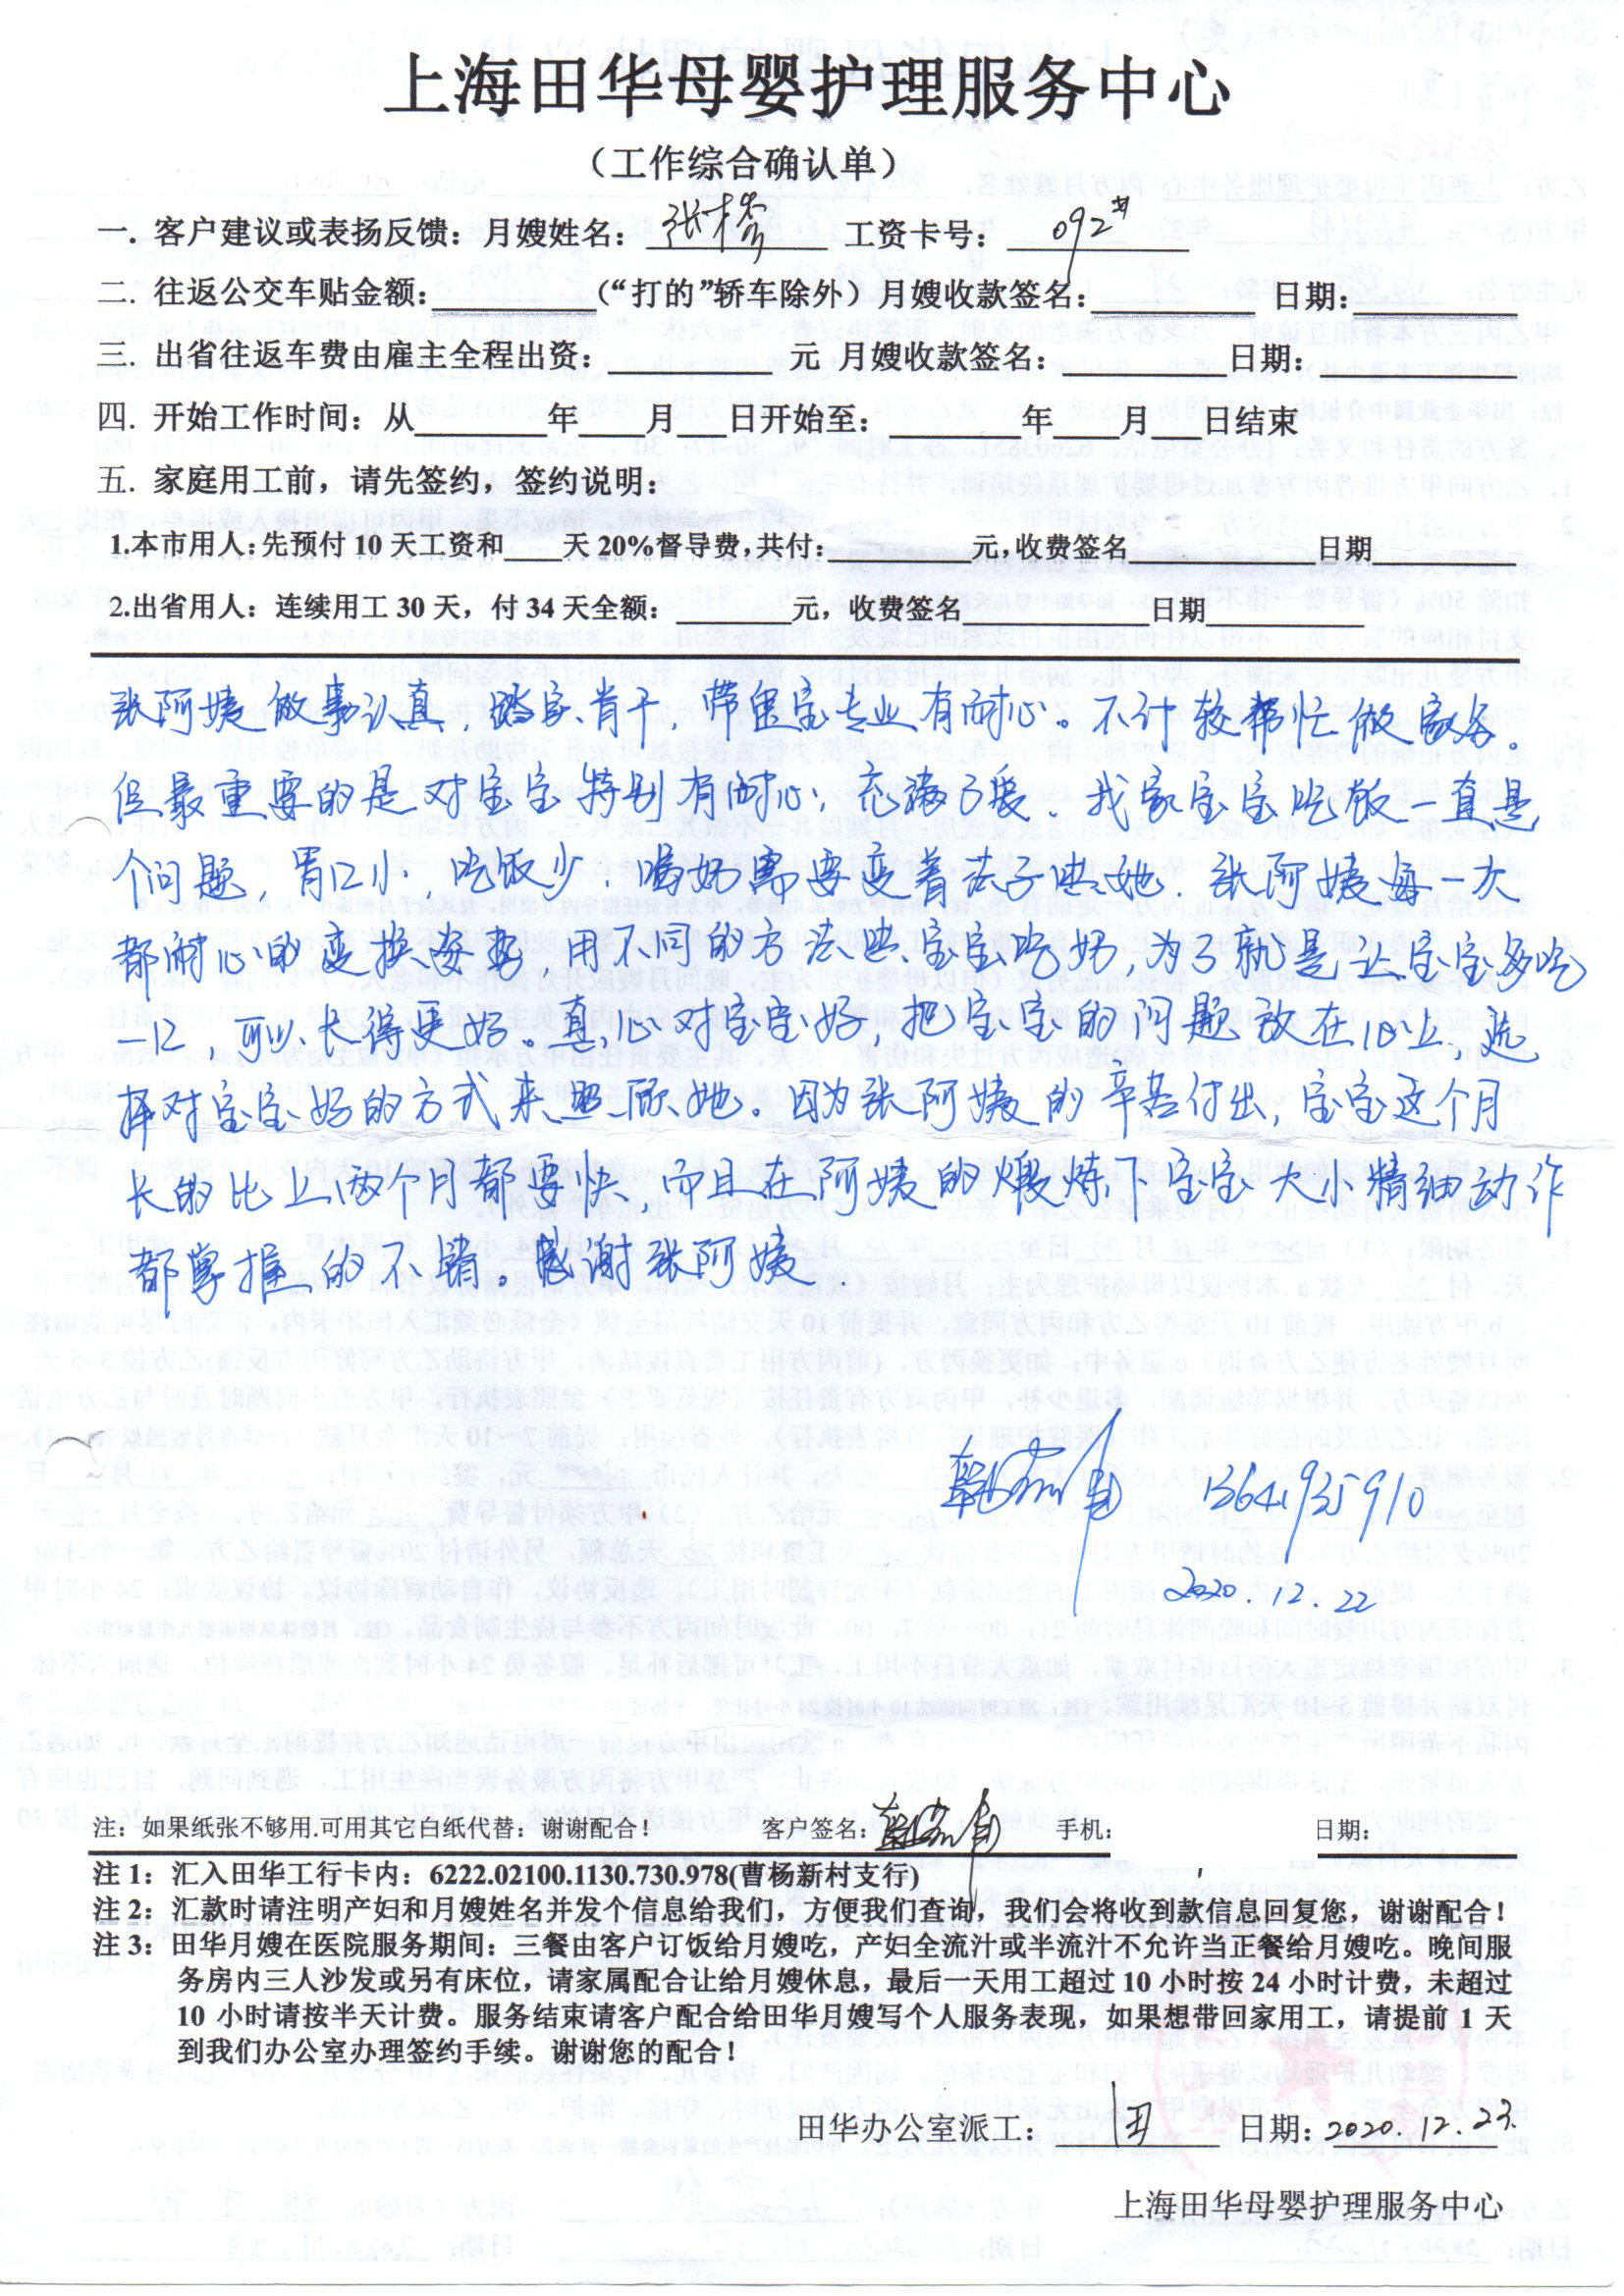 上海田华母婴护理服务中心
(工作综合确认单)
一. 客户建议或表扬反馈：月嫂姓名： 张 工资卡号： 092#
二. 往返公交车贴金额： (“打的”轿车除外) 月嫂收款签名： 日期：
三. 出省往返车费由雇主全程出资： 元 月嫂收款签名： 日期：
四. 开始工作时间：从 年 月 日开始至： 年 月 日结束
五. 家庭用工前，请先签约，签约说明：
1.本市用人：先预付 10 天工资和 天 20%督导费，共付： 元，收费签名 日期
2.出省用人：连续用工 30 天，付 34 天全额： 元，收费签名 日期
张阿姨做事认真，踏实肯干，带宝宝专业有耐心。不计较帮忙做家务。
但最重要的是对宝宝特别有耐心，充满了爱。我家宝宝吃饭一直是
个问题，胃口小，吃饭少，喝奶需要变着法子喂她。张阿姨每一次
都耐心的变换姿势 用不同的方法喂宝宝吃奶，为了就是让宝宝多吃
一口，可以长得更好。真心对宝宝好，把宝宝的问题放在心上，选
择对宝宝好的方式来照顾她。因为张阿姨的辛苦付出，宝宝这个月
长的比上两个月都要快，而且在阿姨的煅炼下宝宝大小精细动作
都掌握的不错。感谢张阿姨.
13641935910
2020.12.22
注：如果纸张不够用.可用其它白纸代替：谢谢配合！ 客户签名： 手机： 日期：
注 1：汇入田华工行卡内：6222.02100.1130.730.978(曹杨新村支行)
注 2：汇款时请注明产妇和月嫂姓名并发个信息给我们，方便我们查询，我们会将收到款信息回复您，谢谢配合！
注 3：田华月嫂在医院服务期间：三餐由客户订饭给月嫂吃，产妇全流汁或半流汁不允许当正餐给月嫂吃。晚间服
务房内三人沙发或另有床位，请家属配合让给月嫂休息。最后一天用工超过 10 小时按 24 小时计费，未超过
10 小时请按半天计费。服务结束请客户配合给田华月嫂写个人服务表现，如果想带回家用工，请提前 1 天
到我们办公室办理签约手续。谢谢您的配合！
田华办公室派工： 田 日期：2020.12.23
上海田华母婴护理服务中心